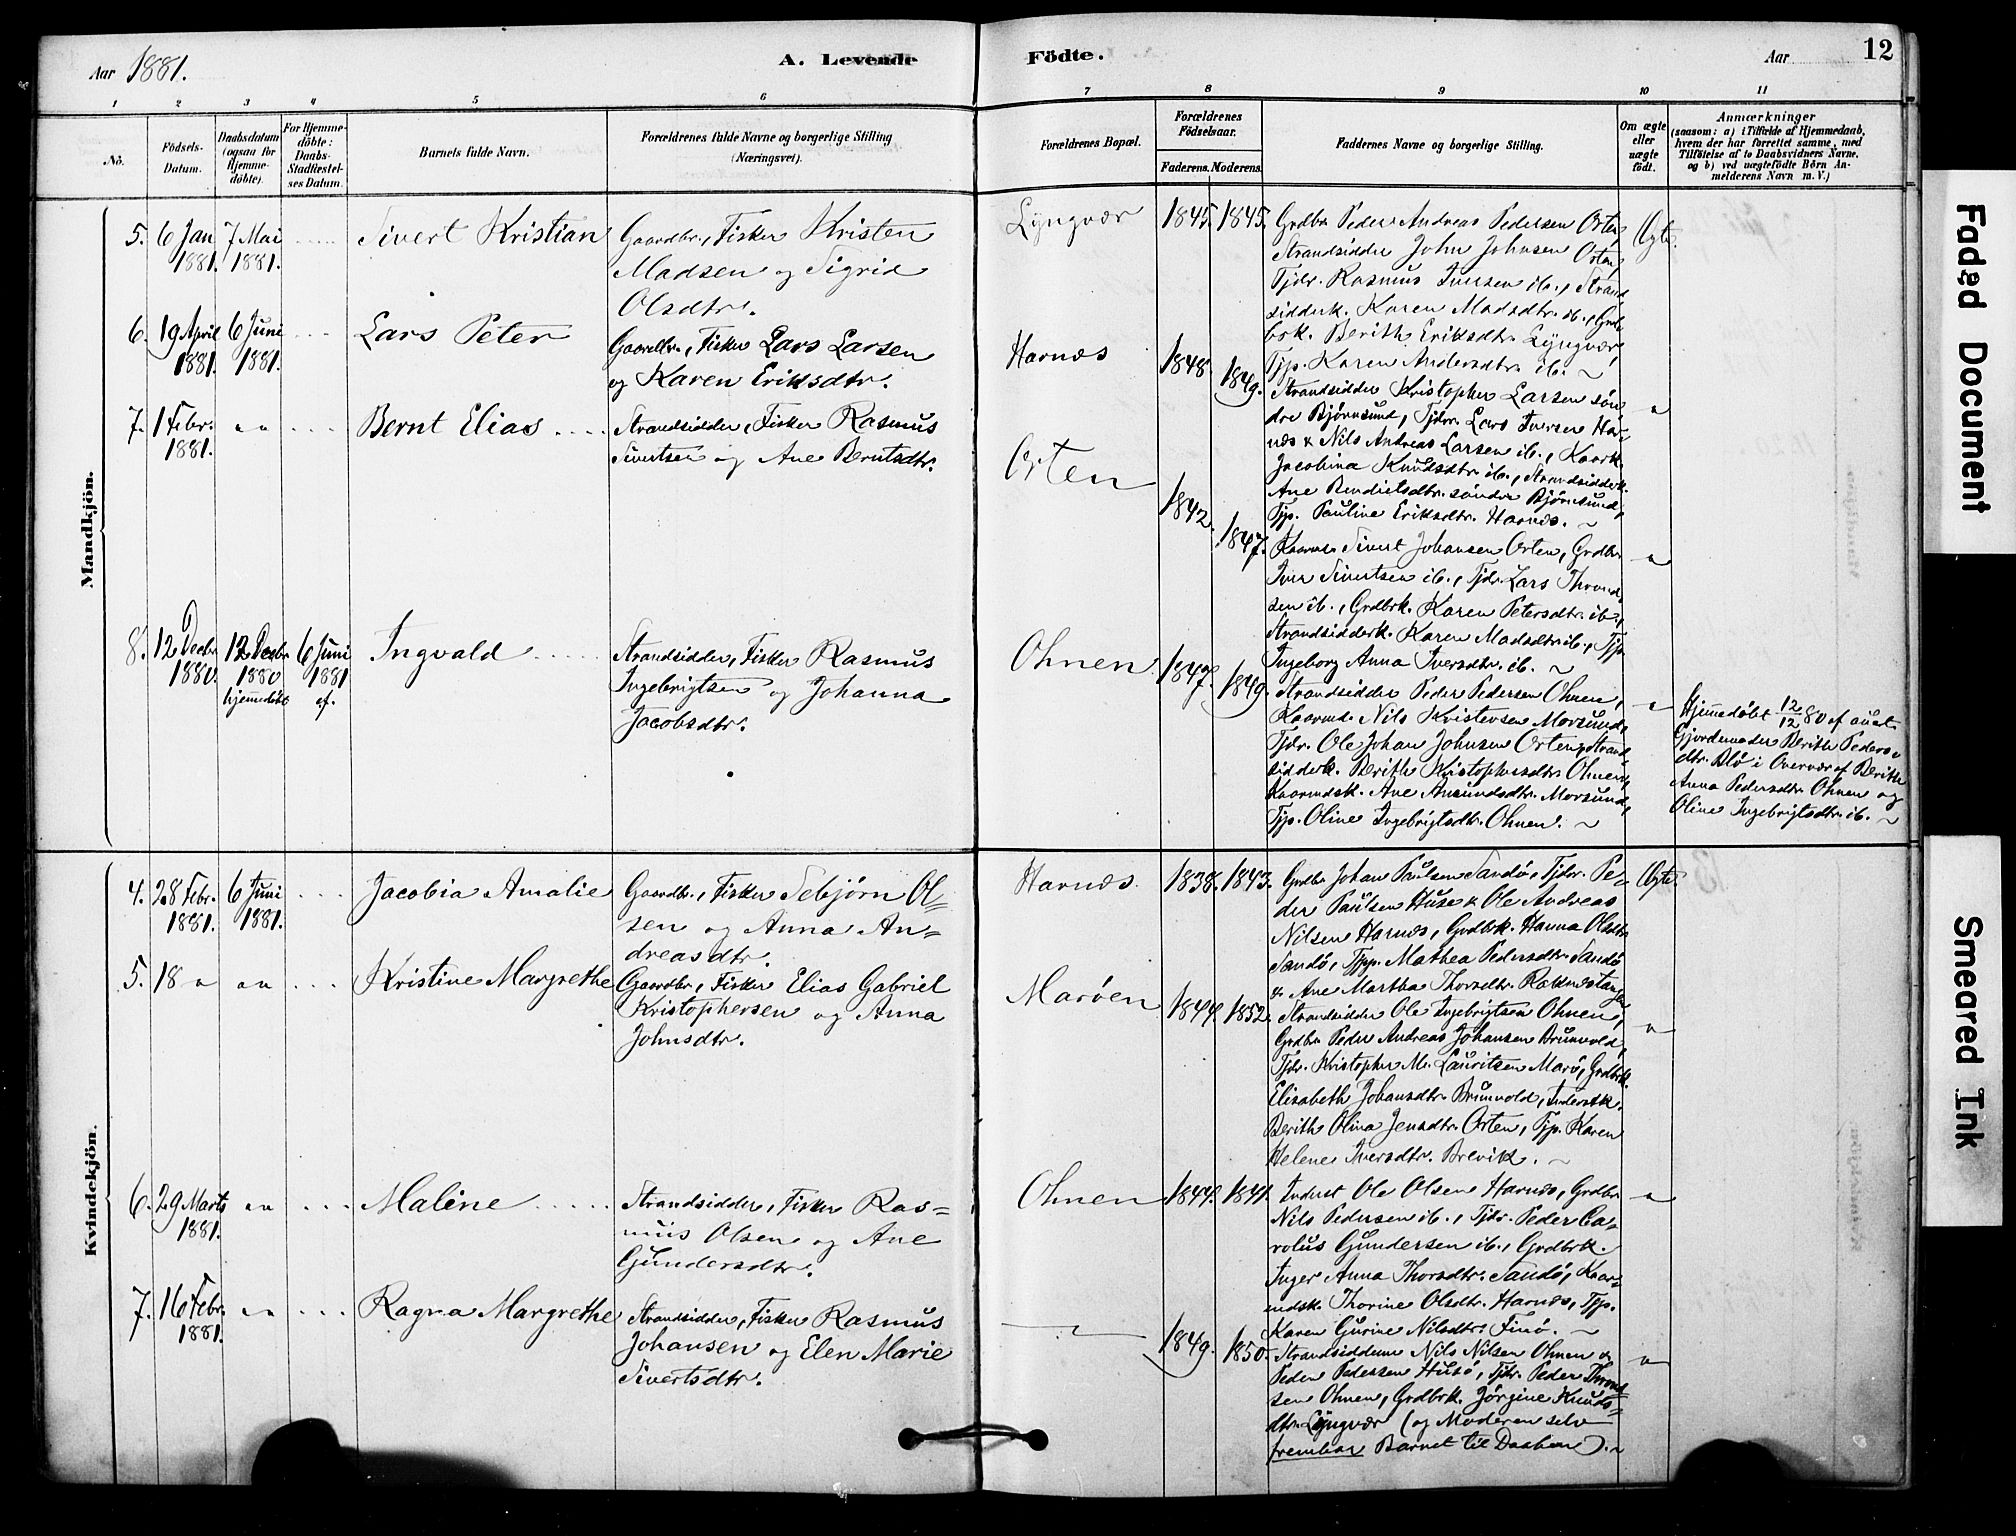 Aar 1881.
A. Levende
Födte.
Aar
12
1
2
3
4
5
6
7
8
9
10
11
No.
Födsels-
Datum.
Daabsdatum
(ogsaa for
Hjemme-
döbte).
For Hjemme-
döbte:
Daabs-
Stadfæstel-
ses Datum.
Barnets fulde Navn.
Forældrenes fulde Navne og borgerlige Stilling
(Næringsvei).
Forældrenes Bopæl.
Forældrenes
Födselsaar.
Faderens. Moderens.
Faddernes Navne og borgerlige Stilling.
Om ægte
eller
uægte
födt.
Anmærkninger
(saasom: a) i Tilfælde af Hjemmedaab,
hvem der har forrettet samme, med
Tilföielse af to Daabsvidners Navne,
og b) ved uægtefödte Börn An-
melderens Navn m. V.)
Mandkjön.
5. 6 Jan
1881.
7 Mai
1881.
Sivert Kristian
Gaardbr., Fisker Kristen
Madsen og Sigrid
Olsdtr.
Lyngvær
1845. 1845.
Grdbr. Peder Andreas Pedersen Orten,
Strandsidder John Johnsen Orten,
Tjdr. Rasmus Iversen ib., Strand
sidderk. Karen Madsdtr. ib., Grd
brk. Berith Eriksdtr. Lyngvær,
Tjp. Karen Andersdtr. ib. ~
Ægte.
6. 19 April
1881.
6 Juni
1881.
Lars Peter
Gaardbr., Fisker Lars Larsen
og Karen Eriksdtr.
Harnæs
1848. 1849.
Strandsidder Kristopher Larsen søn
dre Bjørnsund, Tjdr. Lars Iversen Har-
næs & Nils Andreas Larsen ib., Kaark.
Jacobina Knudsdtr. ib., Strandsidderk.
Ane Bendictsdtr. søndre Bjørnsund,
Tjp. Pauline Eriksdtr. Harnæs. ~
"
7. 1 Febr.
1881.
" "
Bernt Elias
Strandsidder, Fisker Rasmus
Sivertsen og Ane Berntsdtr.
Orten
1842. 1847.
Kaarmd. Sivert Johansen Orten, Grdbr.
Iver Sivertsen ib., Tjdr. Lars Thrond
sen ib., Grdbrk. Karen Petersdtr. ib.,
Strandsidderk. Karen Madsdtr. ib., Tjp.
Ingeborg Anna Iversdtr. ib. ~
"
8. 12 Decbr
1880.
12 Decbr
1880
hjemmedöbt
6 Juni
1881
ef.
Ingvald
Strandsidder, Fisker Rasmus
Ingebrigtsen og Johanna
Jacobsdtr.
Ohnen
1847. 1849.
Strandsidder Peder Pedersen Ohnen,
Kaarmd. Nils Kristensen Morsund,
Tjdr. Ole Johan Johnsen Orten, Strand
sidderk. Berith Kristophersdtr. Ohnen,
Kaarmdsk. Ane Amundsdtr. Morsund,
Tjp. Oline Ingebrigtsdtr. Ohnen. ~
"
Hjemmedöbt 12/12 80 af
Gjordemoder Berith Peders-
dtr. Blö i Overvær af Berith
Anna Pedersdtr. Ohnen og
Oline Ingebrigtsdtr. ib. ~
Kvindekjön.
4. 28 Febr.
1881.
6 Juni
1881.
Jacobia Amalie
Gaardbr., Fisker Sebjörn Ol-
sen og Anna An-
dreasdtr.
Harnæs
1838. 1843.
Grdbr. Johan Paulsen Sandö, Tjdr. Pe-
der Paulsen Huse & Ole Andreas
Nilsen Harnæs, Grdbrk. Hanna Olsdtr.
Sandö, Tjpp. Mathea Pedersdtr. Sandö
& Ane Martha Thorsdtr. Raknestangen
Ægte.
5. 18 "
" "
Kristine Margrethe
Gaardbr., Fisker Elias Gabriel
Kristophersen og Anna
Johnsdtr.
Maröen
1844. 1852.
Strandsidder Ole Ingebrigtsen Ohnen,
Grdbr. Peder Andreas Johansen Brunvold,
Tjdr. Kristopher M. Lauritsen Marö, Grdbrk.
Elisabeth Johansdtr. Brunvold, Inderstk.
Berith Olina Jensdtr. Orten, Tjp. Karen
Helene Iversdtr. Brevik. ~
"
6. 29 Marts
1881.
" "
Maline
Strandsidder, Fisker Ras-
mus Olsen og Ane
Gundersdtr.
Ohnen
1844. 1841.
Inderst Ole Olsen Harnæs, Grdbr.
Nils Pedersen ib., Tjdr. Peder Ca-
rolus Gundersen ib., Grdbrk.
Inger Anna Thorsdtr. Sandö, Kaar-
mdsk. Thorine Olsdtr. Harnæs, Tjp.
Karen Gurine Nilsdtr. Finö. ~
"
7. 16 Febr.
1881.
" "
Ragna Margrethe
Strandsidder, Fisker Rasmus
Johansen og Elen Marie
Sivertsdtr.
"
1849. 1850.
Strandsidderne Nils Nilsen Ohnen &
Peder Pedersen Husö, Tjdr. Peder Thrond
sen Ohnen, Grdbrk. Jörgine Knuds-
dtr. Lyngvær (og Moderen selv
frembar Barnet til Daaben). ~
"
Faded Document
Smeared Ink